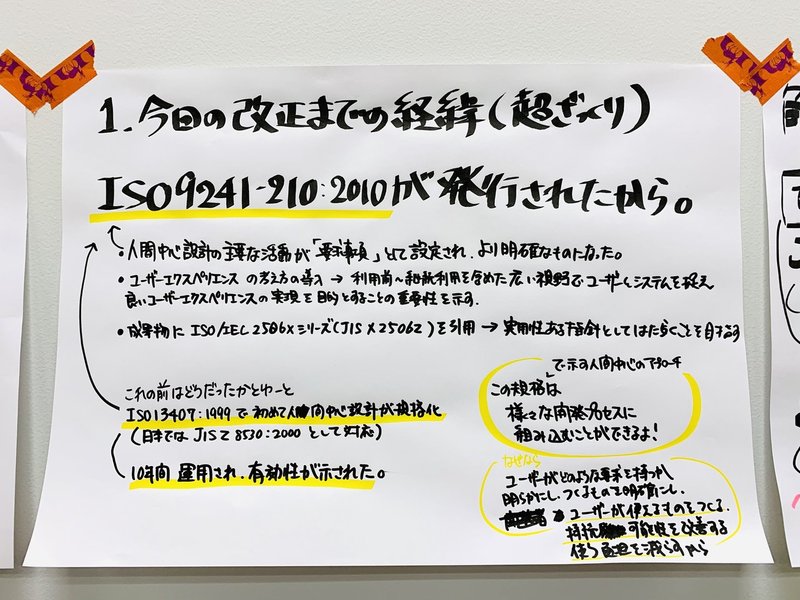 1. 今回の改正までの経緯(超ざっくり)
ISO9241-210:2010が発行されたから。
・人間中心設計の主要な活動が「要求事項」として設定され、より明確なものになった。
・ユーザーエクスペリエンスの考え方の導入 → 利用前〜継続利用を含めた広い視野でユーザーとシステムを捉え
良いユーザーエクスペリエンスの実現を目的とすることの重要性を示す.
・成果物に ISO/IEC 2506xシリーズ(JIS X 2506Z)を引用 → 実用性ある指針としてはたらくことを目ざす
これの前はどうだったかとゆーと
ISO13407:1999で初めて人間中心設計が規格化
(日本では JIS Z 8530:2000 として対応)
10年間 運用され、有効性が示された。
で示す人間中心のアプローチ
この規格は
様々な開発プロセスに
組み込むことができるよ!
なぜなら
ユーザーがどのような要求を持つか
明らかにし、つくるものを明確にし、
ユーザーが使えるものをつくる.
可能性を改善する
使う 負担を減らすから